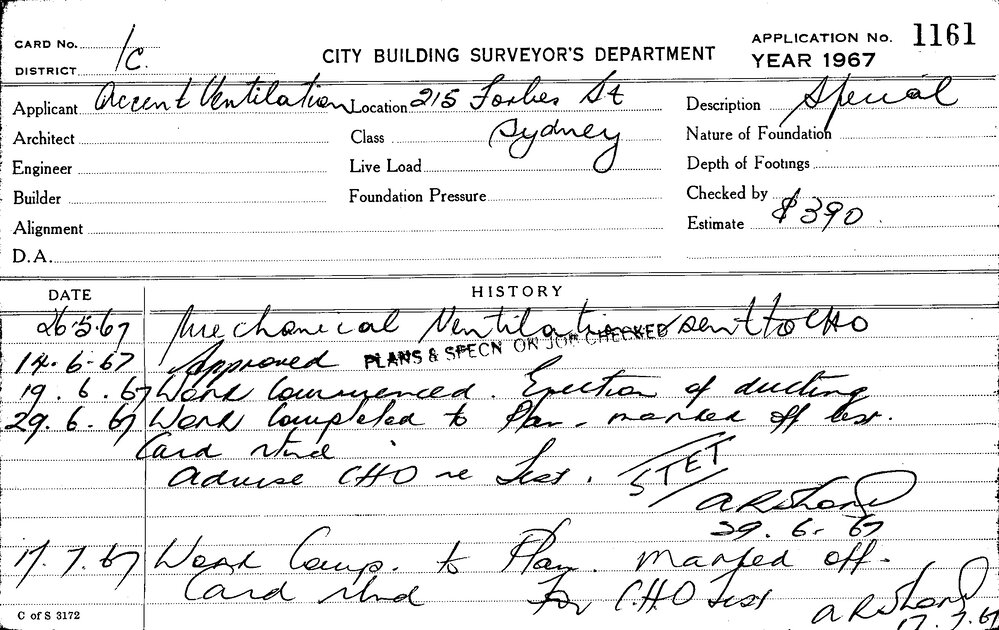 CARD No. 1c.
DISTRICT
CITY BUILDING SURVEYOR'S DEPARTMENT
APPLICATION No. 1161
YEAR 1967
Applicant Accent Ventilation Location 215 Forbes St Description Special
Architect Class Sydney Nature of Foundation
Engineer Live Load Depth of Footings
Builder Foundation Pressure Checked by
Alignment Estimate $390
D.A.
DATE HISTORY
26.5.67 Mechanical Ventilation sent to CHO
14.6.67 Approved PLANS & SPECN ON JOB CHECKED
19.6.67 Work Commenced. Erection of ducting
29.6.67 Work Completed to Plan. marked off
Card rtnd
Advise CHO re Test. STET
29.6.67
17.7.67 Work Comp. to Plan. marked off.
Card rtnd For C.H.O Test
17.7.67
C of S 3172